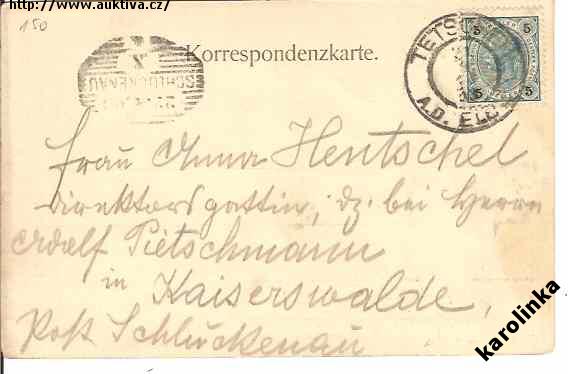 http://www.auktiva.cz/
150
Korrespondenzkarte.
SCHLUCKENAU
TETSCHEN
A.D. ELBE
5 5
5 5
Frau Anna Hentschel
Direktorsgattin, dz. bei Herrn
Adolf Pietschmann
in Kaiserswalde,
Post Schluckenau
karolinka